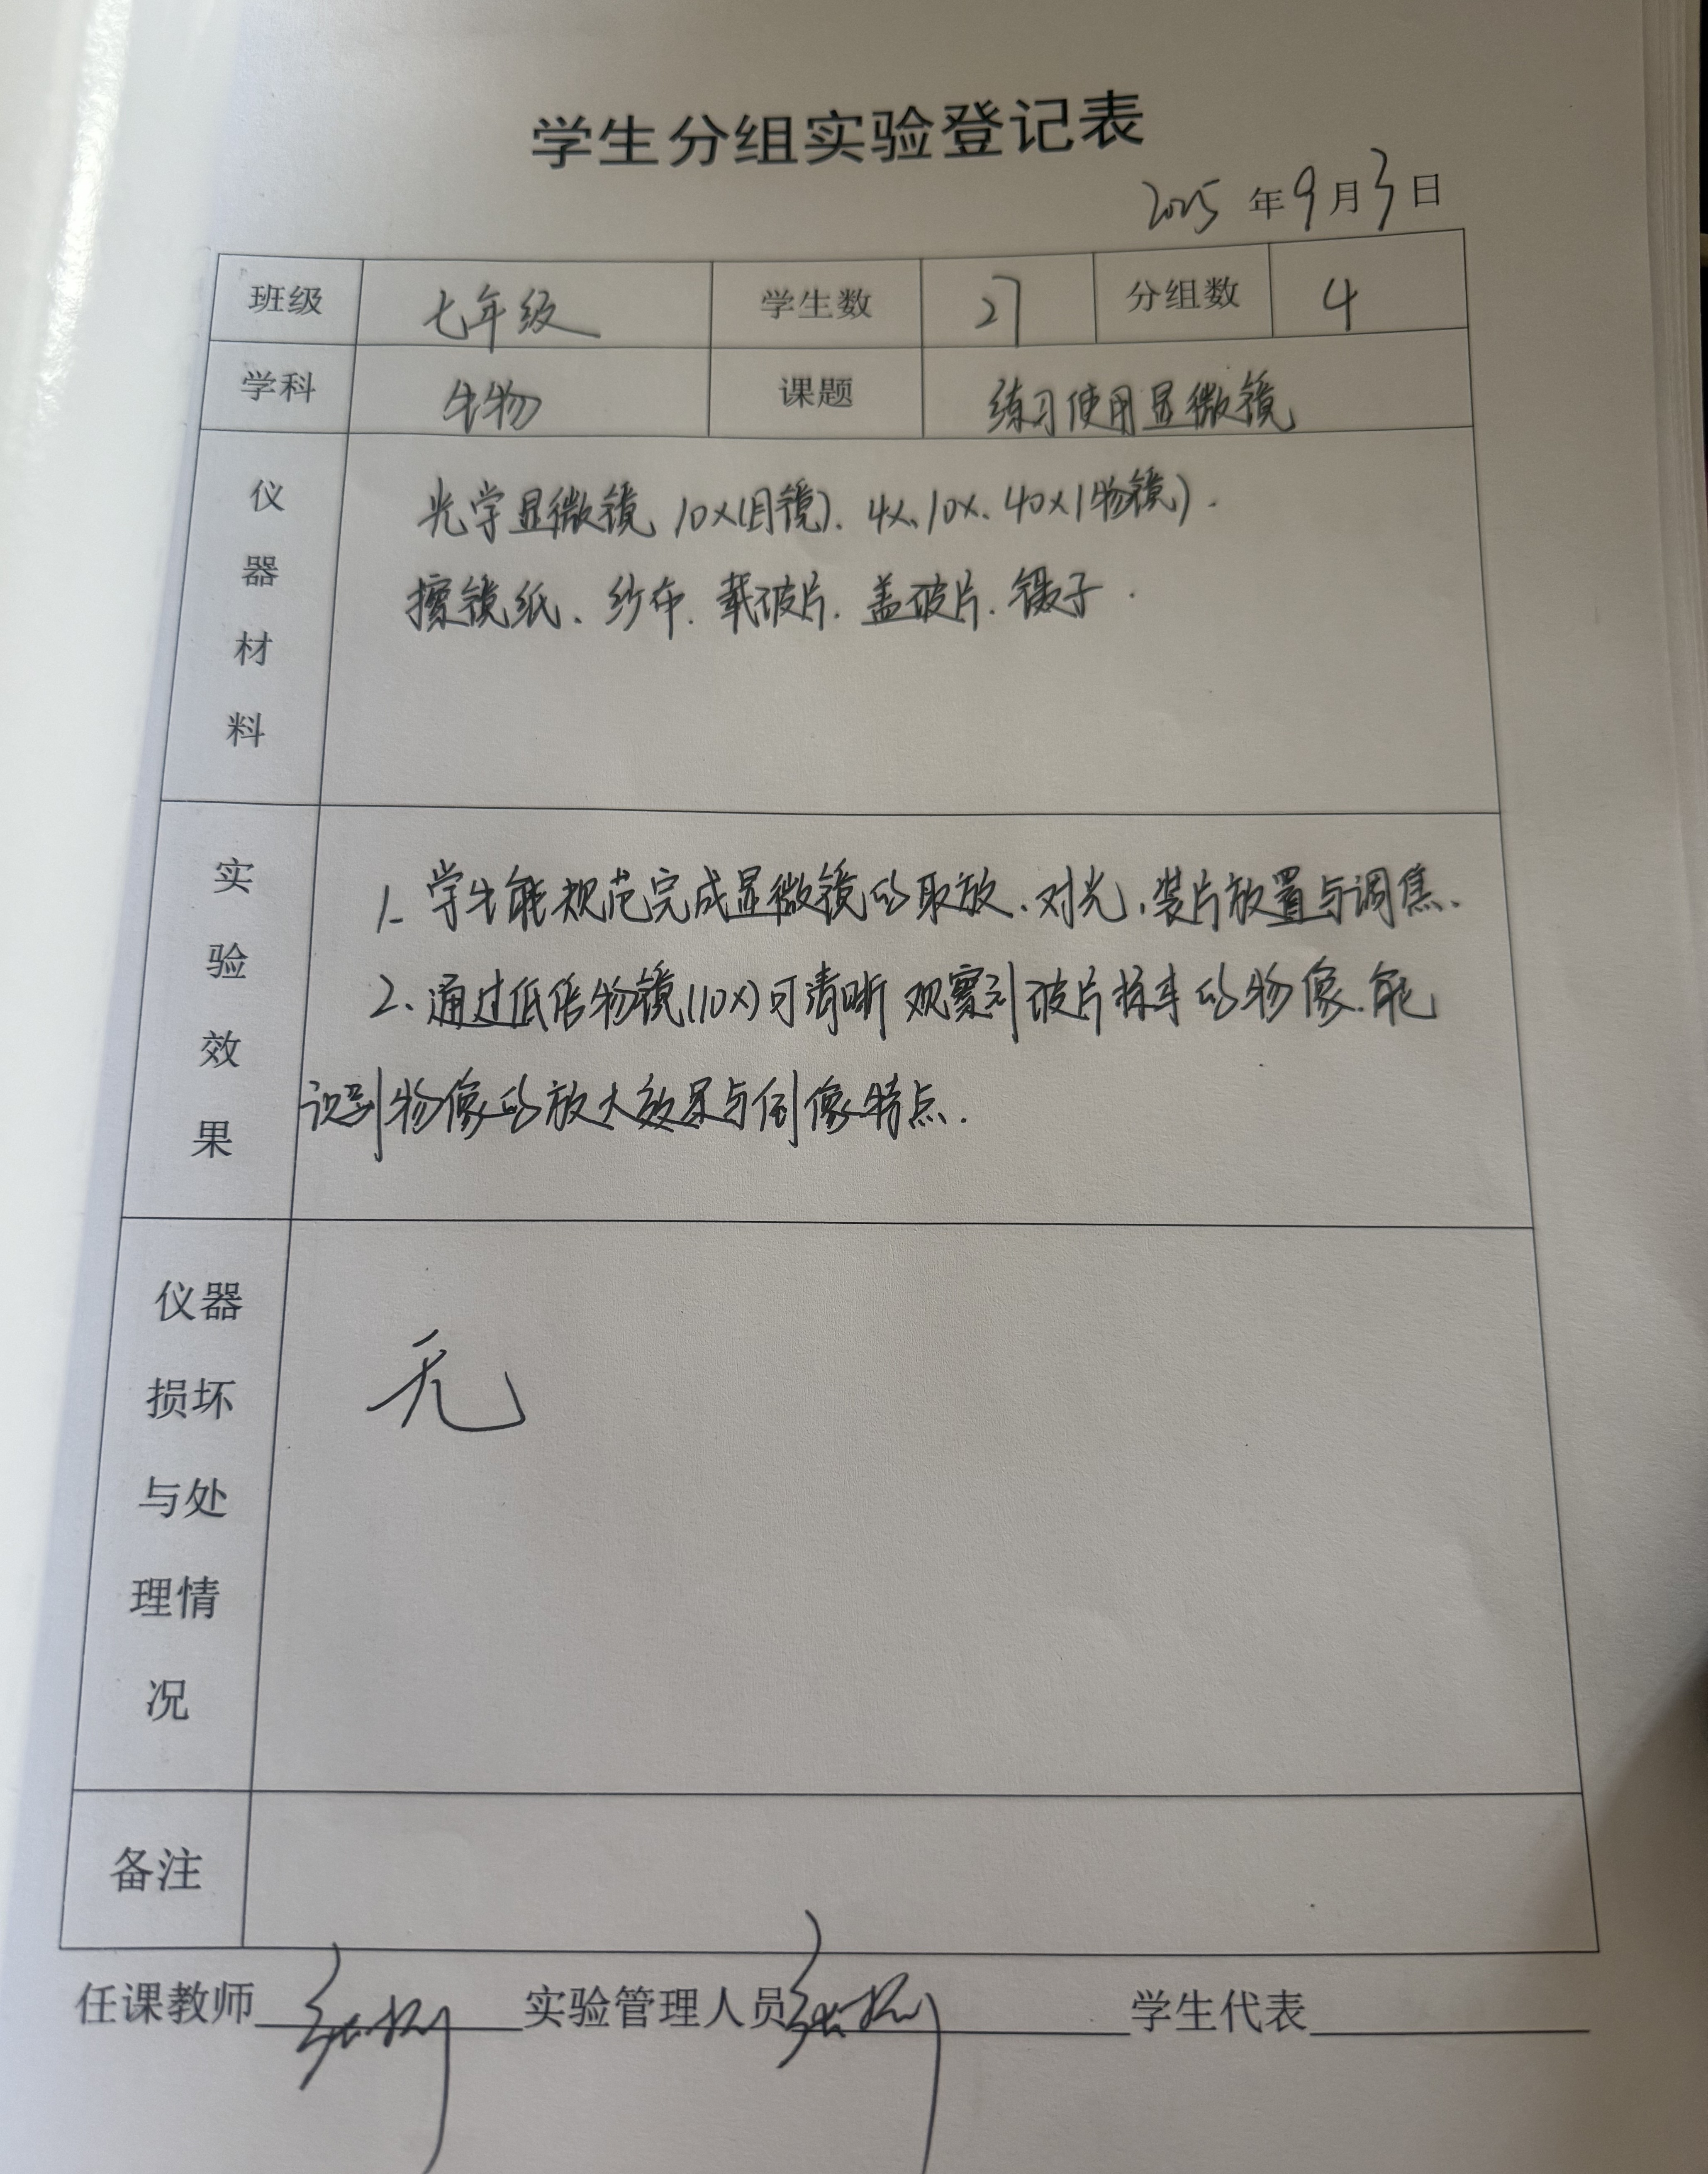 学生分组实验登记表
2025年9月3日
班级 七年级 学生数 27 分组数 4
学科 生物 课题 练习使用显微镜
仪器材料
光学显微镜 10×(目镜)、4×、10×、40×(物镜).
擦镜纸、纱布、载玻片、盖玻片、镊子.
实验效果
1. 学生能规范完成显微镜的取放、对光、装片放置与调焦.
2. 通过低倍物镜(10×)可清晰观察到玻片标本的物像.能
识别物像的放大效果与倒像特点.
仪器损坏与处理情况
无
备注
任课教师 实验管理人员 学生代表